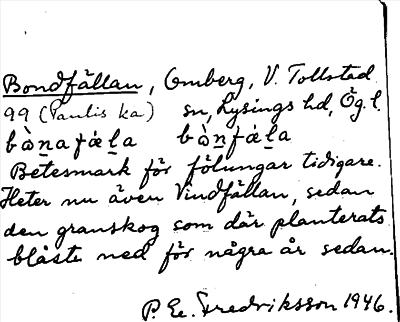 Bondfällan, Omberg, V. Tollstad
99 (Paulis ka) sn, Lysings hd, Ög. l.
bὰ̀nafάla bὰ̀nfάla
Betesmark för fölungar tidigare.
Heter nu även Vindfällan, sedan
den granskog som där planterats
blåste ned för några år sedan.
P. Ee. Fredriksson 1946.